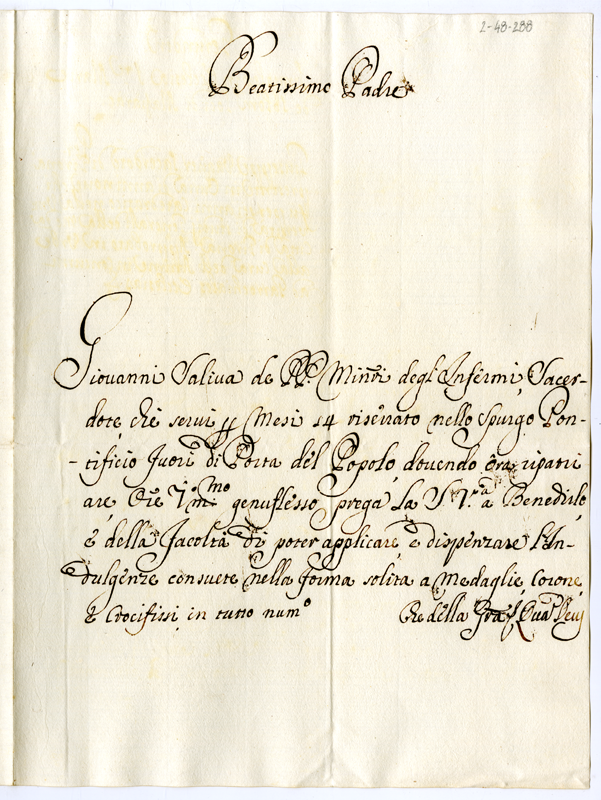 2-48-288
Beatissimo Padre
Giovanni Saliva de PP. Minri degl'Infermi, Sacer-
dote, che servì per Mesi 14 riserrato nello Spurgo Pon-
tificio fuori di Porta del Popolo, dovendo ora ripatri
are, Ore Vmo. genuflesso prega La S. V.ra a Benedirlo,
e della facoltà di poter applicare, e dispenzare l'In-
dulgenze consuete nella forma solita a Medaglie, corone,
e Crocifissi in tutto numo
Che della Gra